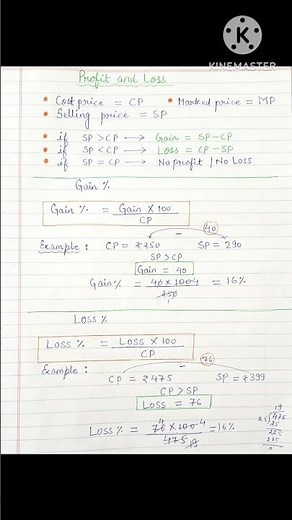 KINEMASTER
Profit and Loss
• Cost price = CP • Marked price = MP
• Selling price = SP
• if SP > CP → Gain = SP - CP
• if SP < CP → Loss = CP - SP
• if SP = CP → No profit / No Loss
Gain %
Gain % = Gain × 100
CP
40
Example : CP = ₹250 SP = 290
SP > CP
Gain = 40
Gain % = 40 × 100 4 = 16%
250
1
Loss %
Loss % = Loss × 100
CP
Example : 76
CP = ₹475 SP = ₹399
CP > SP
Loss = 76
Loss % = 76 4 × 100 4 = 16%
475 19
19
25 475
25
225
225
x